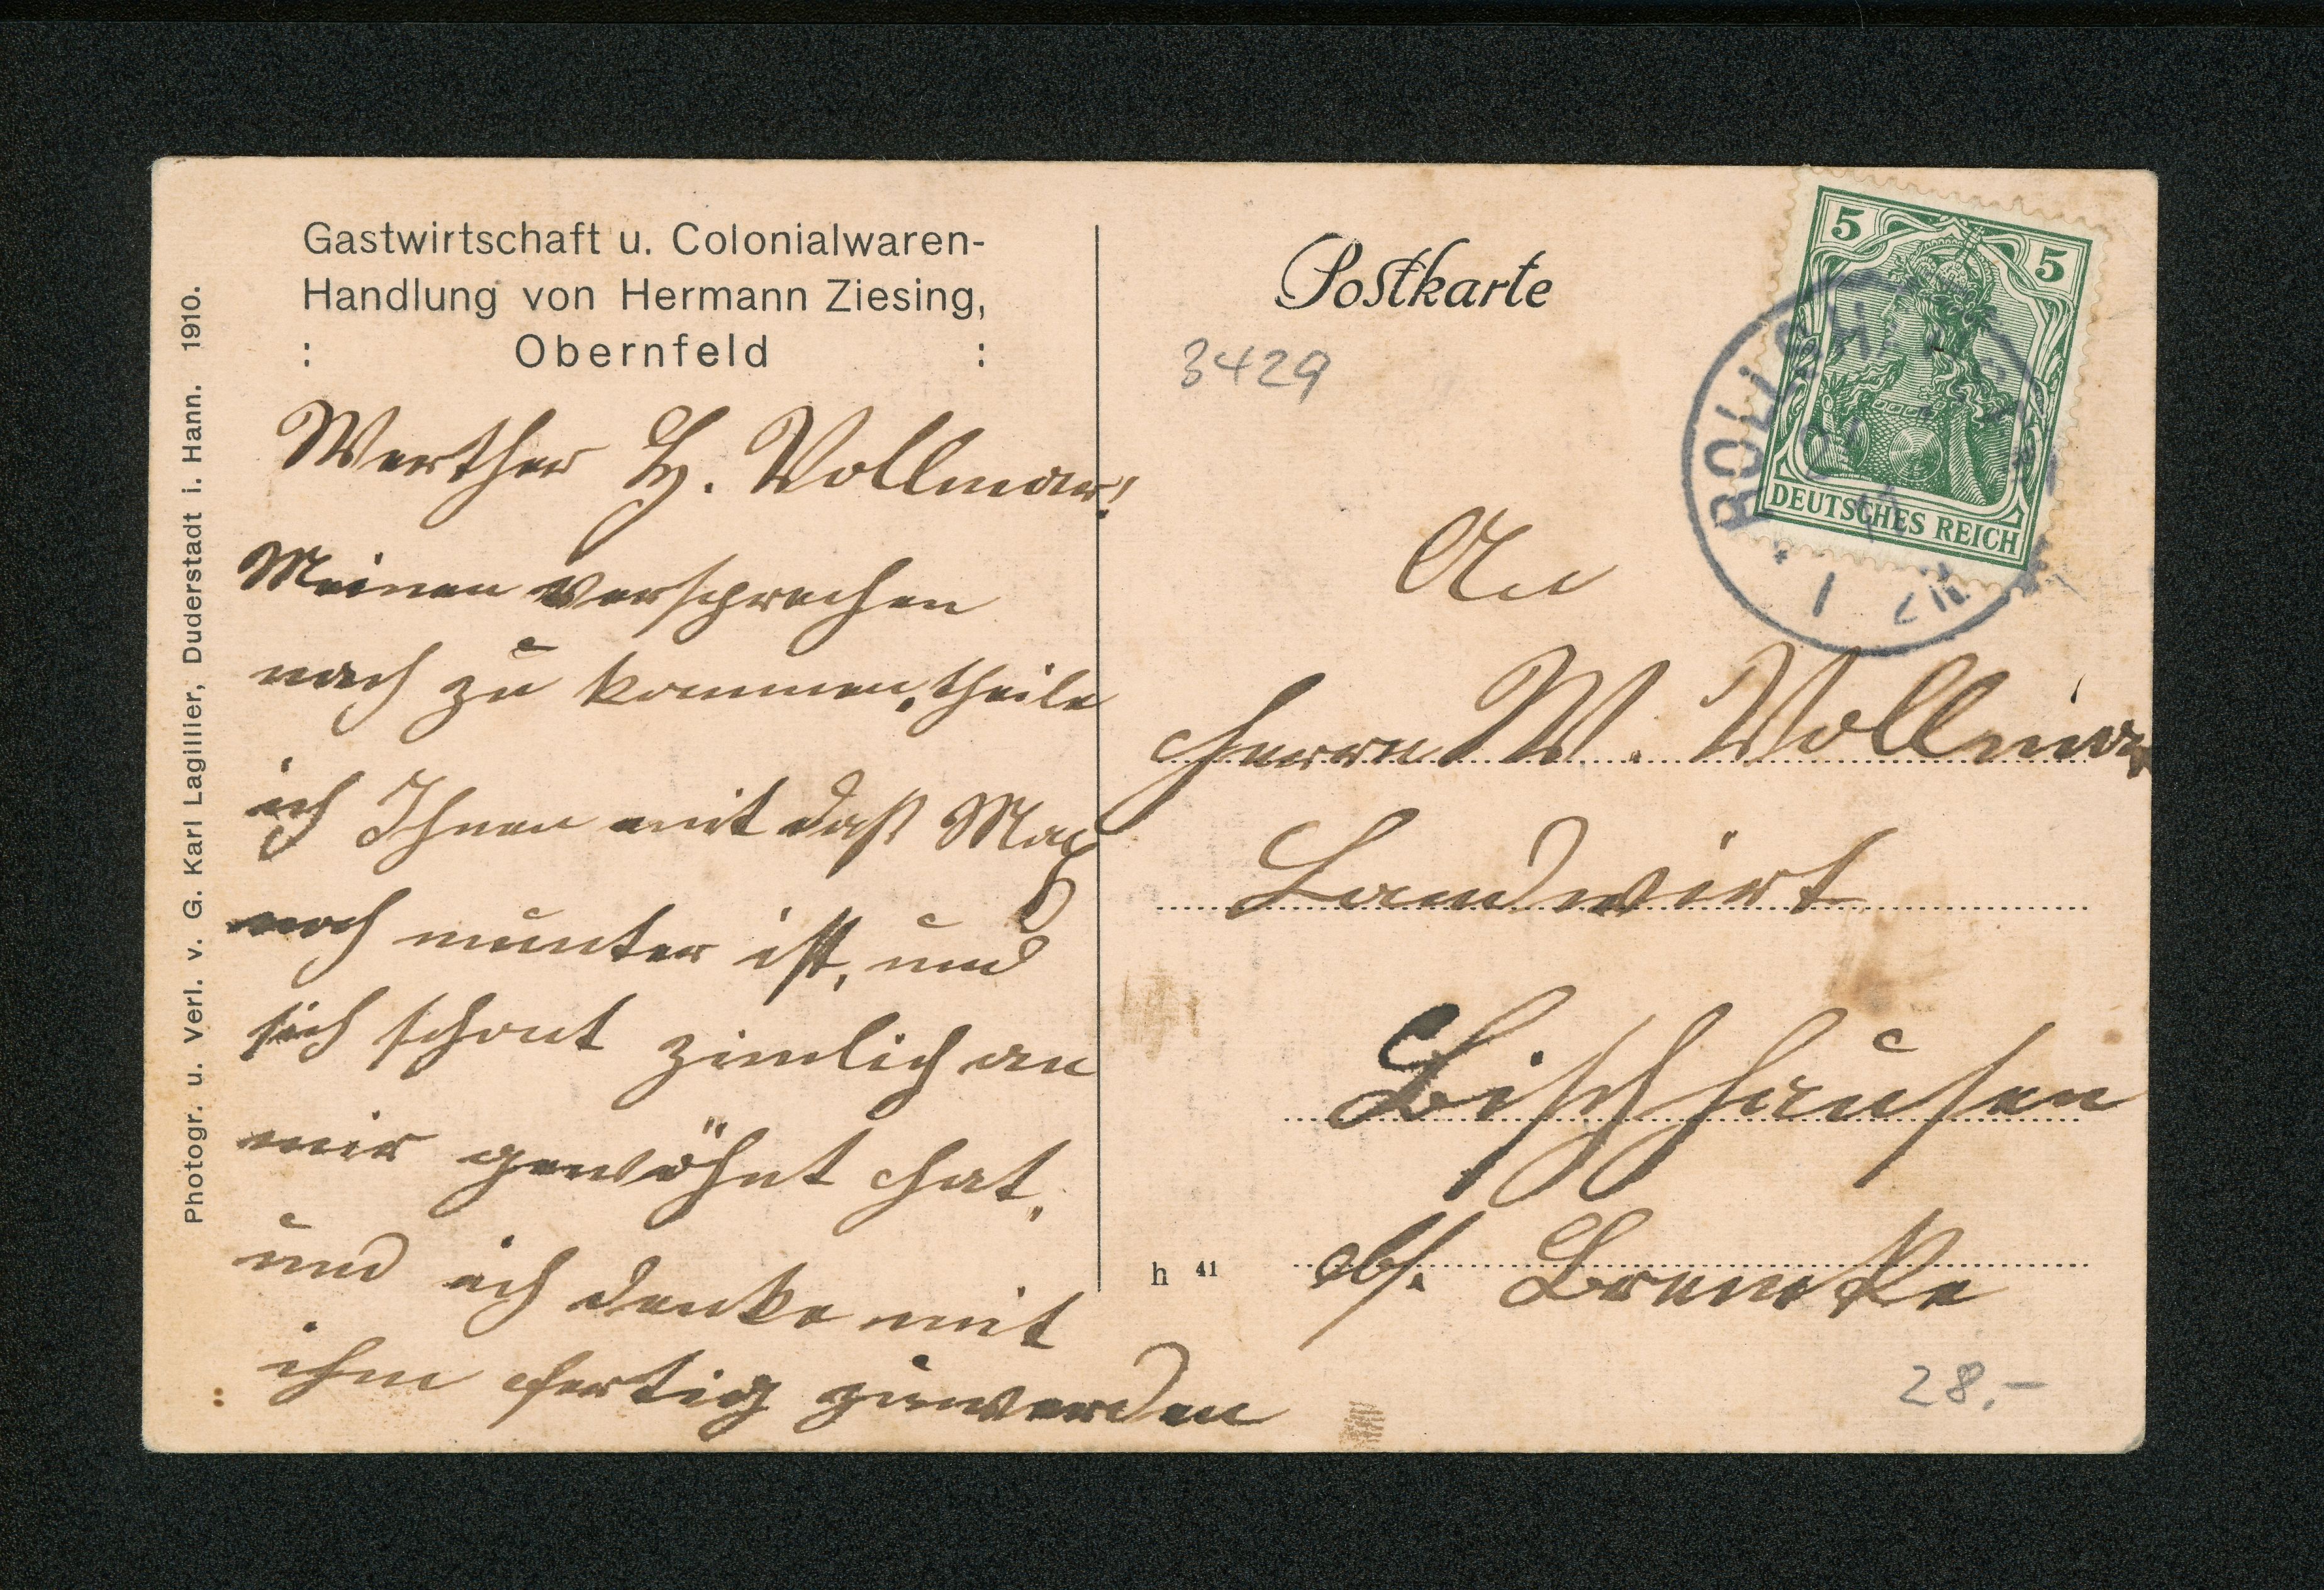 Gastwirtschaft u. Colonialwaren-
Handlung von Hermann Ziesing,
: Obernfeld :
Werther H. Vollmar!
Meinen versprechen
nach zu kommen, theile
ich Ihnen mit daß Max
noch munter ist, und
sich schont zimlich an
mir gewöhnt hat,
und ich denke mit
ihm fertig zuwerden
Photogr. u. Verl. v. G. Karl Lagillier, Duderstadt i. Hann. 1910.
Postkarte
3429
5 5
DEUTSCHES REICH
An
Herrn W. Vollmar
Landwirt
Bischhausen
b/. Bremke
h 41
28.-